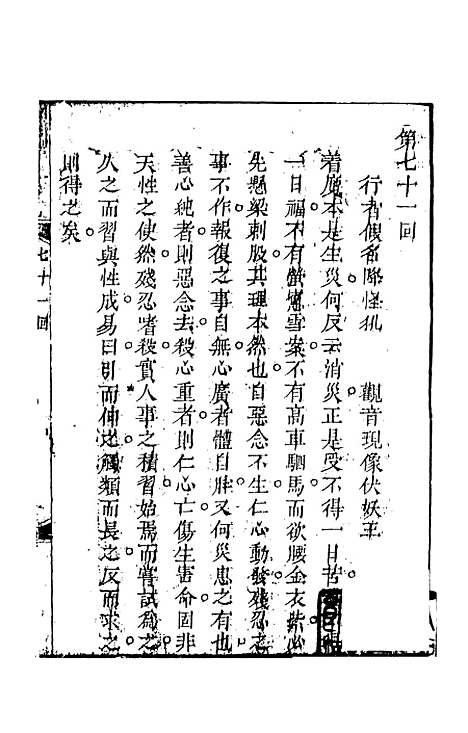 第七十一回
行者假名降怪犼 觀音現像伏妖王
着魔本是生災何反云消災正是受不得一日苦
一日福不有螢窻雪案不有高車駟馬而欲腰金衣紫必
先懸梁刺股其理本然也自惡念不生仁心動發殘忍之
事不作報復之事自無心廣者體自胖又何災患之有也
善心純者則惡念去殺心重者則仁心亡傷生害命固非
天性之使然殘忍嗜殺實人事之積習始焉而嘗試為之
久之而習與性成易曰引而伸之觸類而長之反而求之
則得之矣
七十一回